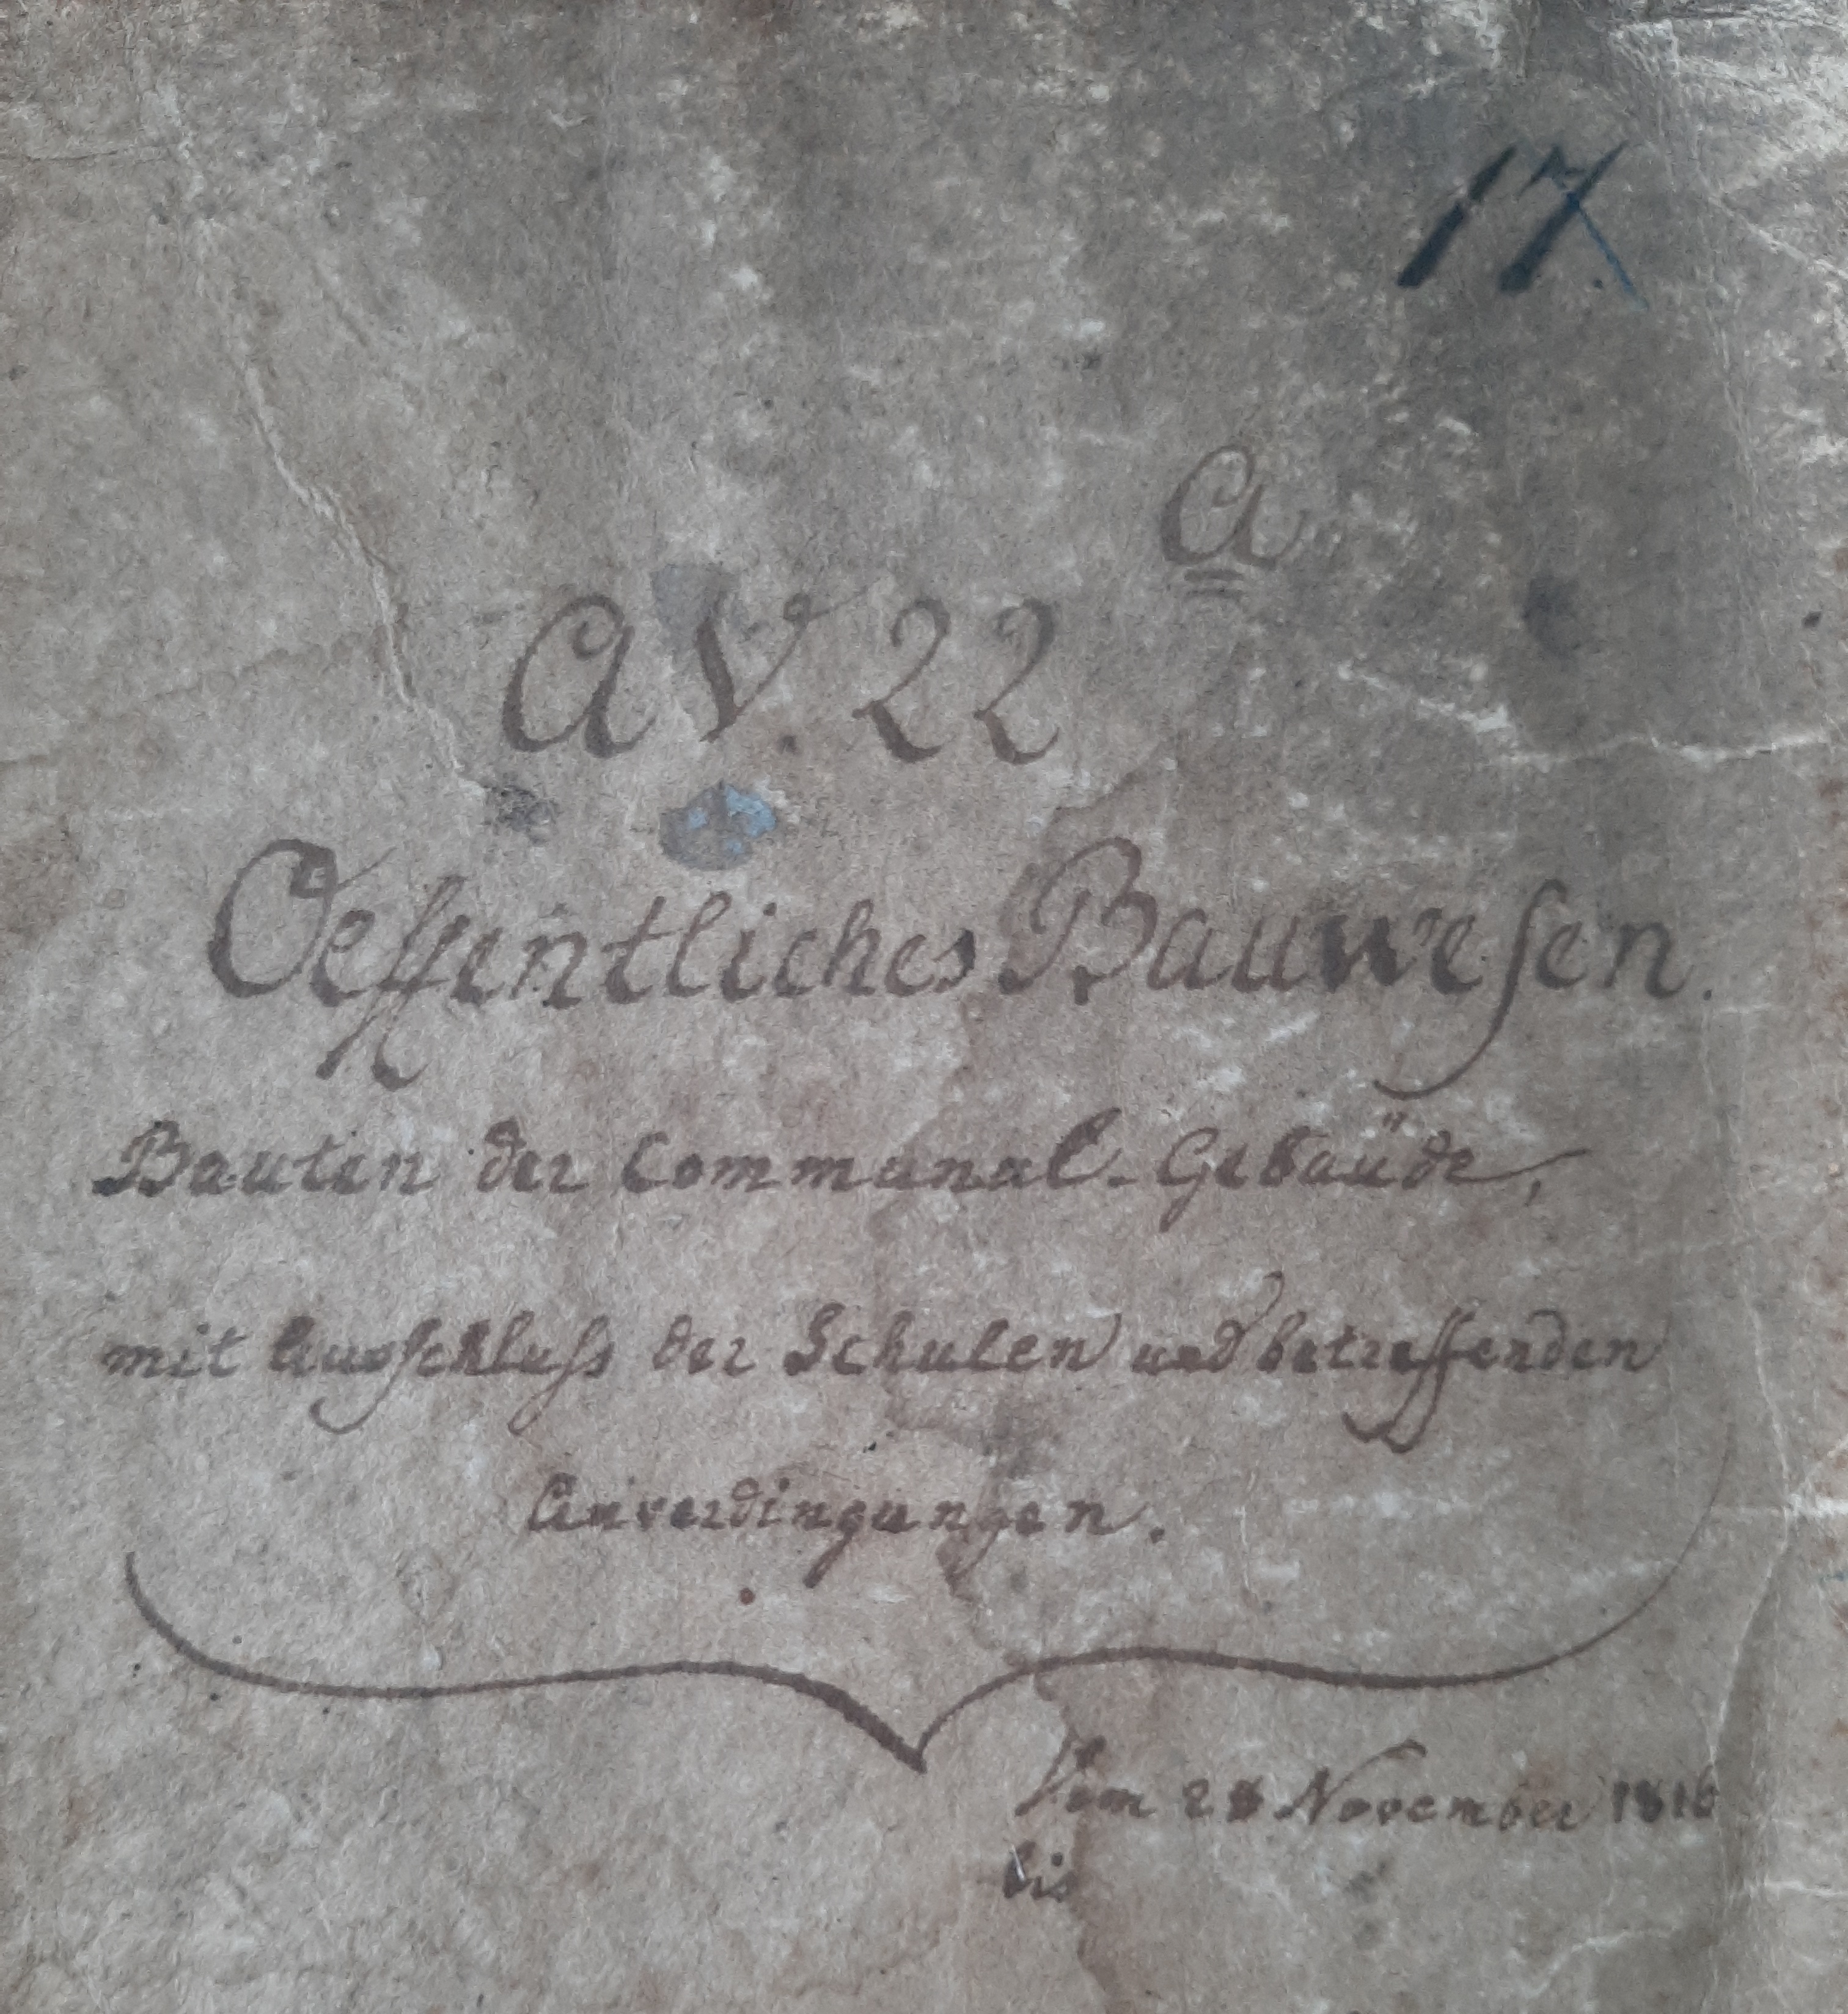 17.
a
AV. 22
Oeffentliches Bauwesen.
Bauten der Communal-Gebäude,
mit Ausschluss der Schulen und betreffenden
Anverdingungen.
Vom 28 November 1816
bis